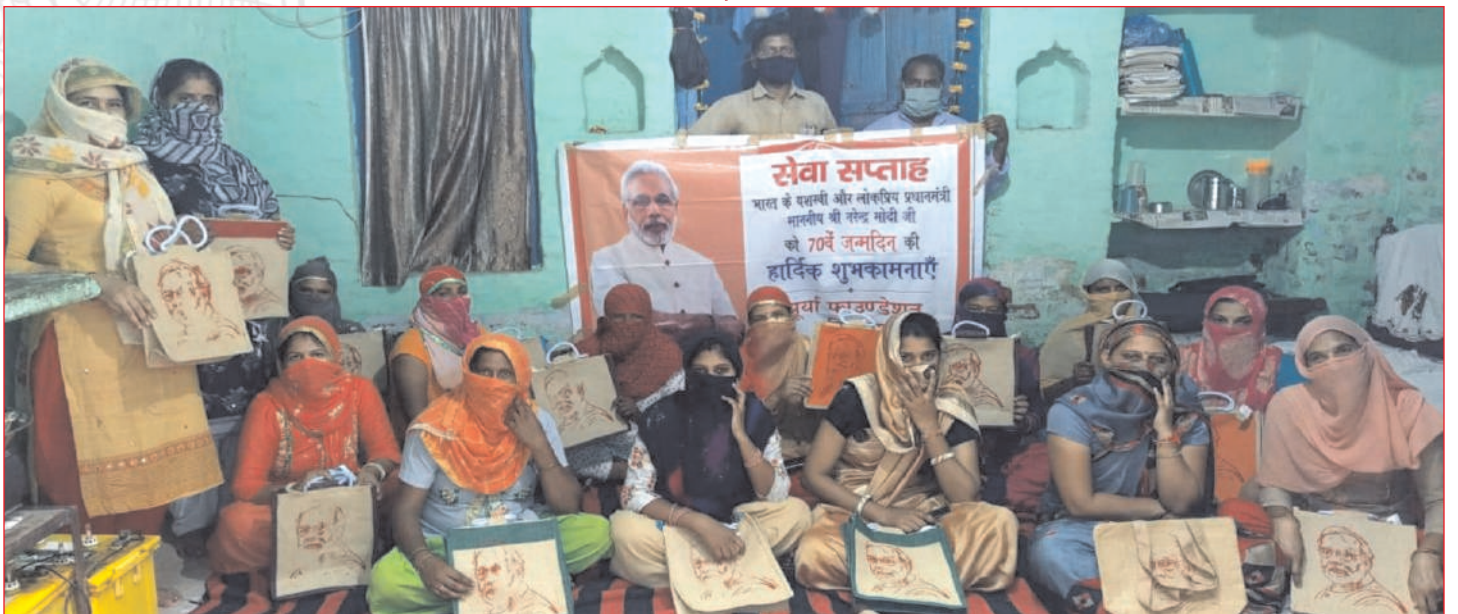 सेवा सप्ताह
भारत के यशस्वी और लोकप्रिय प्रधानमंत्री
माननीय श्री नरेन्द्र मोदी जी
को 70वें जन्मदिन की
हार्दिक शुभकामनाएँ
फाउण्डेशन